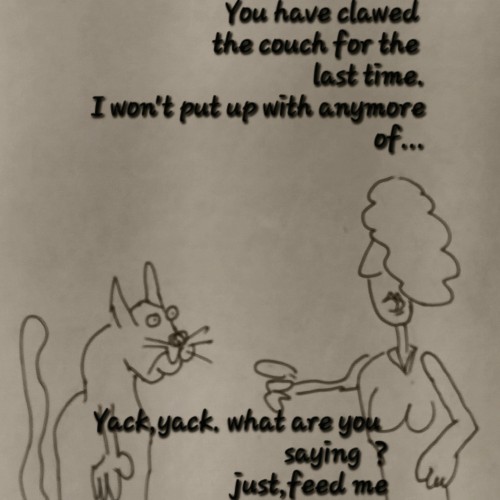 You have clawed
the couch for the
last time.
I won't put up with anymore
of...
Yack,yack. what are you
saying ?
just,feed me